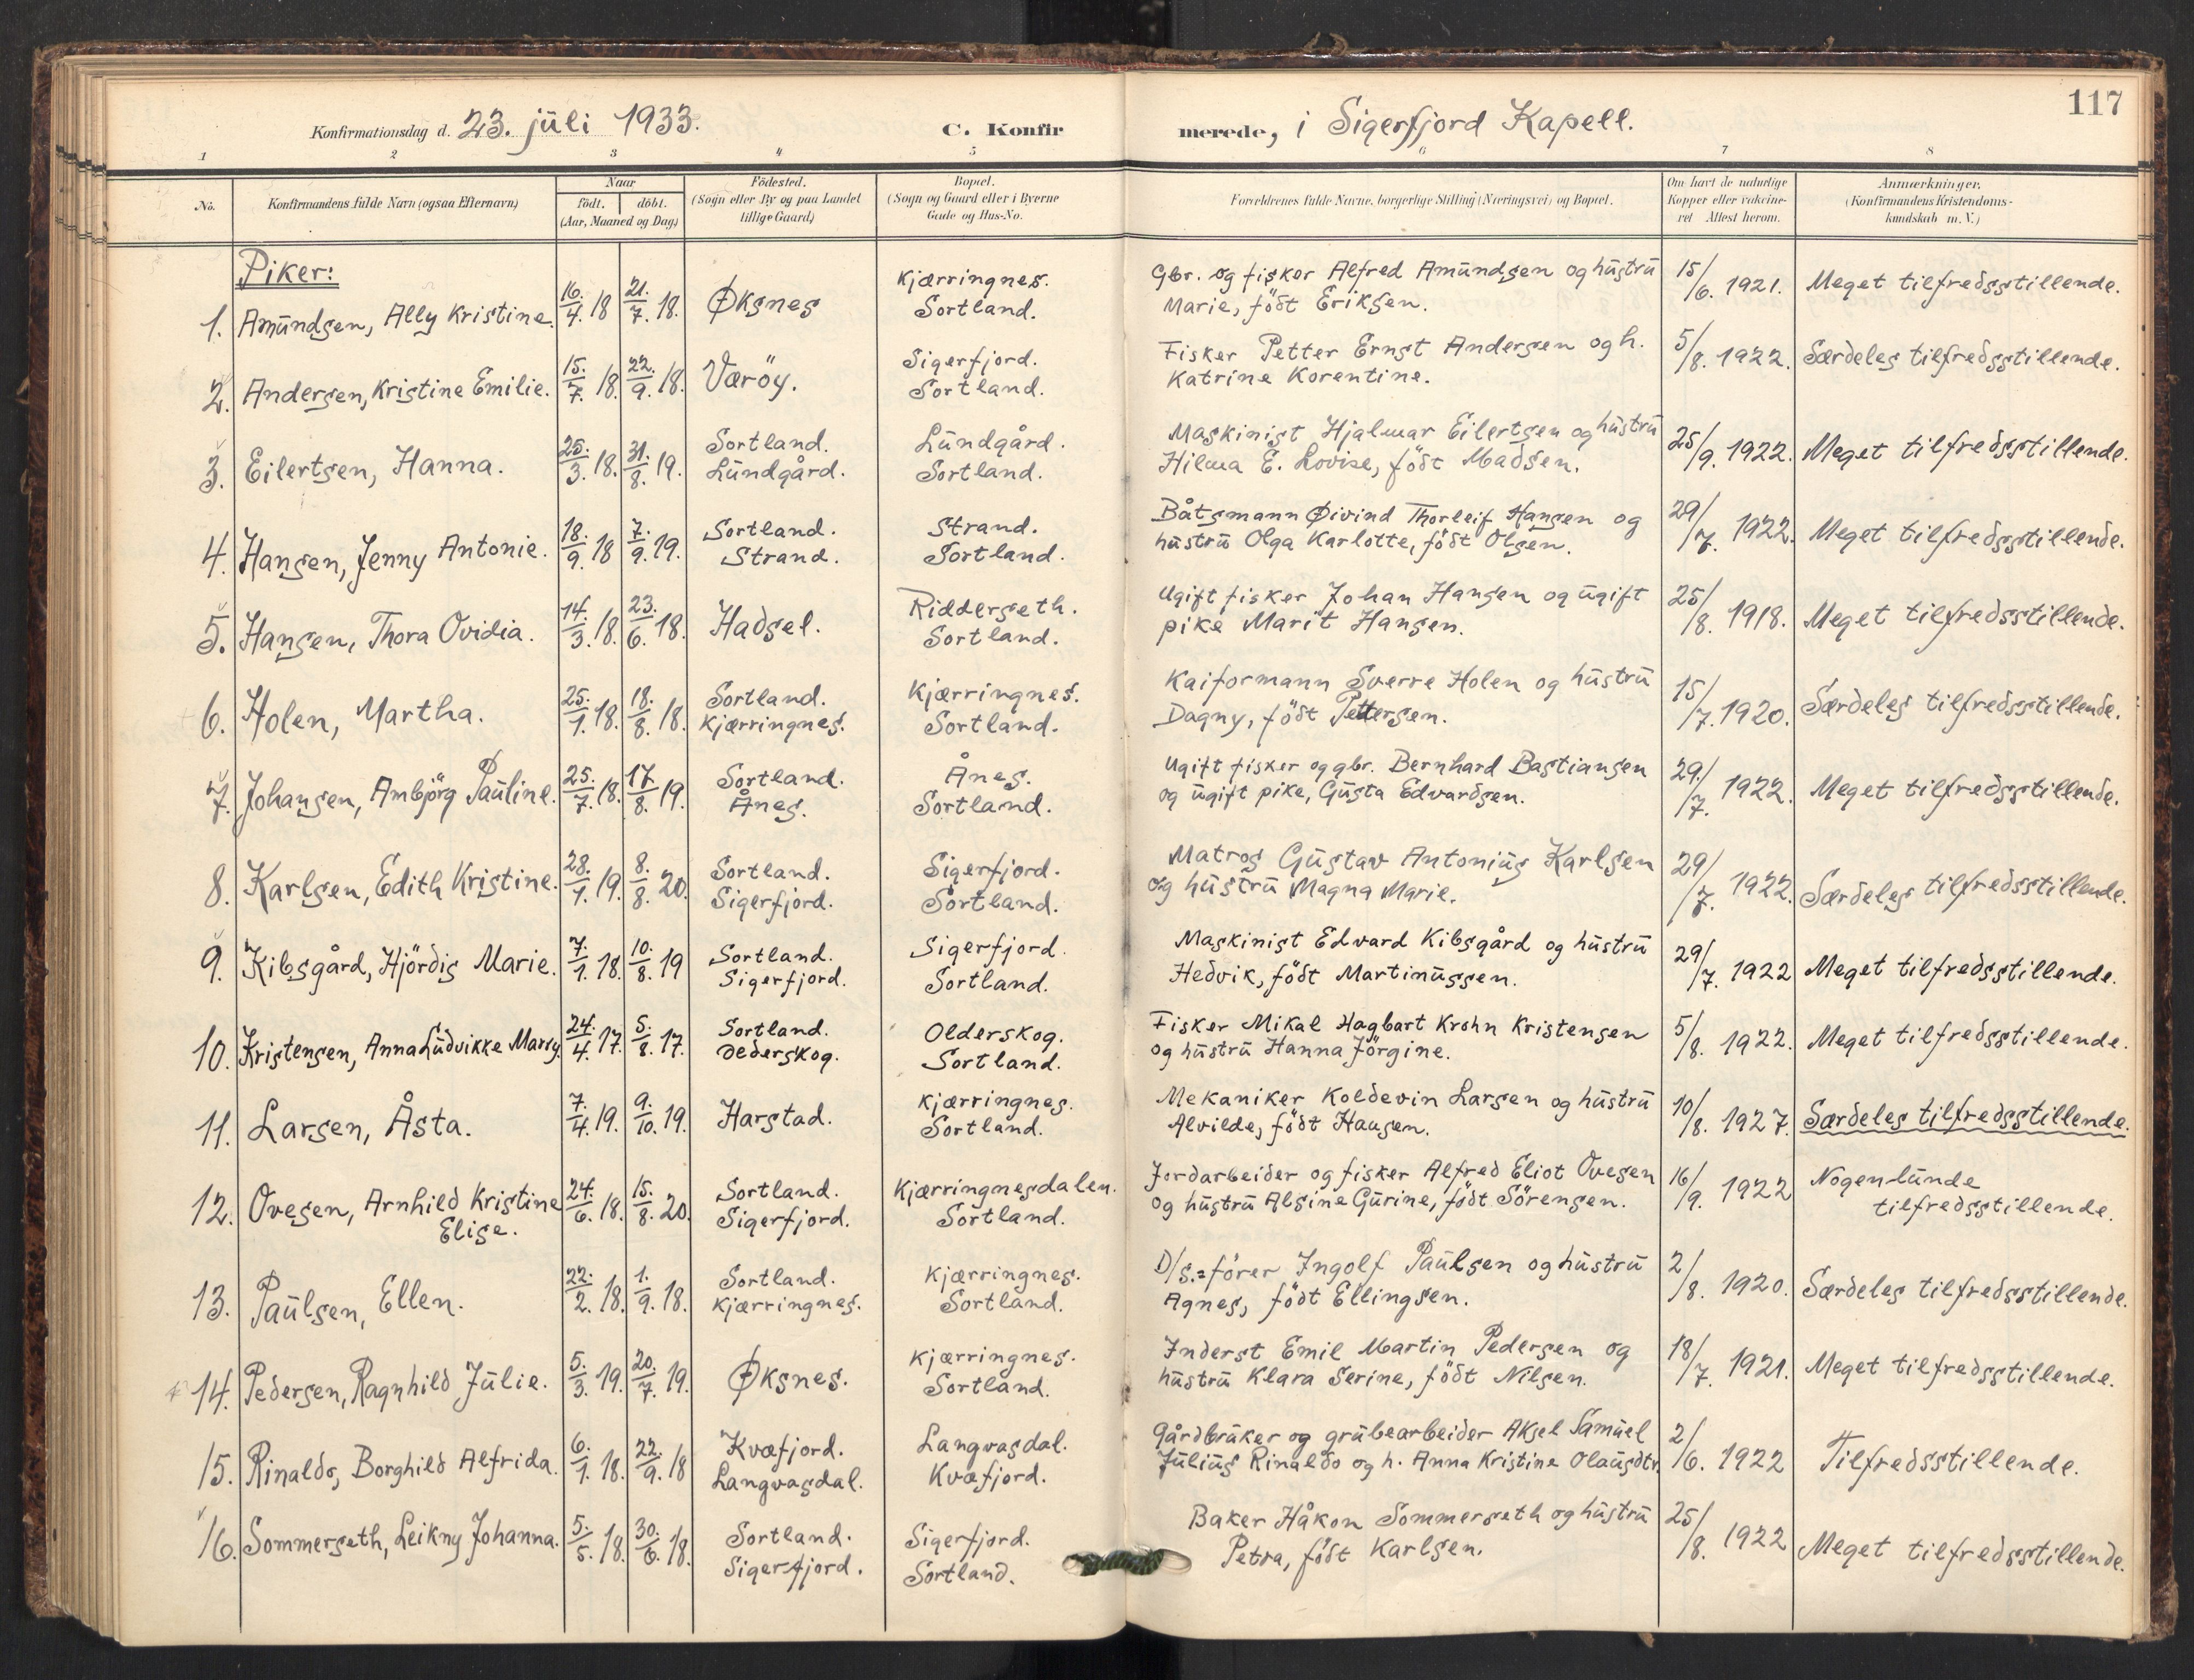 117
Konfirmationsdag d. 23. juli 1933. C. Konfirmerede, i Sigerfjord Kapell.
1 2 3 4 5 6 7 8
No. Konfirmandens fulde Navn (ogsaa Efternavn) Naar født. døbt. (Aar, Maaned og Dag) Fødested. (Sogn eller By og paa Landet tillige Gaard) Bopæl. (Sogn og Gaard eller i Byerne Gade og Hus-No. Forældrenes fulde Navne, borgerlige Stilling (Næringsvei) og Bopæl. Om havt de naturlige Kopper eller vakcineret Attest herom. Anmærkninger. (Konfirmandens Kristendomskundskab m. V.)
Piker:
1. Amundsen, Ally Kristine. 16./4. 18 21./7. 18. Øksnes Kjærringnes. Sortland. Gbr. og fisker Alfred Amundsen og hustru Marie, født Eriksen. 15/6. 1921. Meget tilfredsstillende.
2. Andersen, Kristine Emilie. 15./7. 18. 22./9. 18. Værøy. Sigerfjord. Sortland. Fisker Petter Ernst Andersen og h. Katrine Korentine. 5/8. 1922. Særdeles tilfredsstillende.
3. Eilertsen, Hanna. 25./3. 18. 31./8. 19. Sortland. Lundgård. Lundgård. Sortland. Maskinist Hjalmar Eilertsen og hustru Hilma E. Lovise, født Madsen. 25/9. 1922. Meget tilfredsstillende.
4. Hansen, Jenny Antonie. 18./9. 18 7./9. 19. Sortland. Strand. Strand. Sortland. Båtsmann Øivind Thorleif Hansen og hustru Olga Karlotte, født Olsen. 29/7. 1922. Meget tilfredsstillende.
5. Hansen, Thora Ovidia. 14./3. 18. 23./6. 18. Hadsel. Ridderseth. Sortland. Ugift fisker Johan Hansen og ugift pike Marit Hansen. 25/8. 1918. Meget tilfredsstillende.
6. Holen, Martha. 25./1. 18. 18./8. 18. Sortland. Kjærringnes. Kjærringnes. Sortland. Kaiformann Sverre Holen og hustru Dagny, født Pettersen. 15/7. 1920. Særdeles tilfredsstillende.
7. Johansen, Ambjörg Pauline. 25./7. 18. 17./8. 19. Sortland. Ånes. Ånes. Sortland. Ugift fisker og gbr. Bernhard Bastiansen og ugift pike, Gusta Edvardsen. 29./7. 1922. Meget tilfredsstillende.
8. Karlsen, Edith Kristine. 28./1. 19. 8./8. 20. Sortland. Sigerfjord. Sigerfjord. Sortland. Matros Gustav Antonius Karlsen og hustru Magna Marie. 29/7. 1922. Særdeles tilfredsstillende.
9. Kibsgård, Hjördis Marie. 7./1. 18. 10./8. 19 Sortland. Sigerfjord. Sigerfjord. Sortland. Maskinist Edvard Kibsgård og hustru Hedvik, født Martinussen. 29/7. 1922 Meget tilfredsstillende.
10. Kristensen, Anna Ludvikke Marry. 24./4. 17. 5./8. 17. Sortland. Oederskog. Olderskog. Sortland. Fisker Mikal Hagbart Krohn Kristensen og hustru Hanna Jörgine. 5/8. 1922. Meget tilfredsstillende.
11. Larsen, Åsta. 7./4. 19. 9./10. 19. Harstad. Kjærringnes. Sortland. Mekaniker Koldevin Larsen og hustru Alvilde, født Haugen. 10/8. 1927. Særdeles tilfredsstillende.
12. Ovesen, Arnhild Kristine Elise. 24./6. 18. 15./8. 20. Sortland. Sigerfjord. Kjærringnesdalen. Sortland. Jordarbeider og fisker Alfred Eliot Ovesen og hustru Alsine Gurine, født Sörensen. 16/9. 1922 Nogenlunde tilfredsstillende.
13. Paulsen, Ellen. 22./2. 18. 1./9. 18. Sortland. Kjærringnes. Kjærringnes. Sortland. D/S.=förer Ingolf Paulsen og hustru Agnes, født Ellingsen. 2/8. 1920. Særdeles tilfredsstillende.
14. Pedersen, Ragnhild Julie. 5./3. 19. 20./7. 19. Øksnes. Kjærringnes. Sortland. Inderst Emil Martin Pedersen og hustru Klara Serine, født Nilsen. 18/7. 1921. Meget tilfredsstillende.
15. Rinaldo, Borghild Alfrida. 6./1. 18. 22./9. 18 Kvæfjord. Langvasdal. Langvasdal. Kvæfjord. Gårdbruker og grubearbeider Aksel Samuel Julius Rinaldo og h. Anna Kristine Olausdtr. 2/6. 1922 Tilfredsstillende.
16. Sommerseth, Leikny Johanna. 5./5. 18. 30./6. 18. Sortland. Sigerfjord. Sigerfjord. Sortland. Baker Håkon Sommerseth og hustru Petra, født Karlsen. 25/8. 1922 Meget tilfredsstillende.